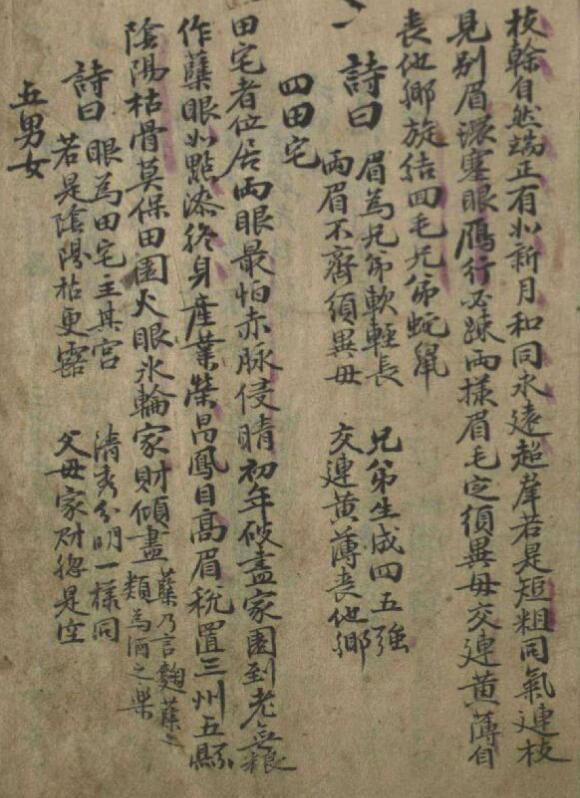 枝幹自然端正有如新月和同永遠超羣若是短粗同氣連枝
見別眉濃塞眼鴈行必疎兩樣眉毛定須異母交連黃薄自
喪他鄉旋結四毛兄弟蛇鼠
詩曰
眉為兄弟軟輕長 兄弟生成四五強
兩眉不齊須異母 交連黃薄喪他鄉
四田宅
田宅者位居兩眼最怕赤脉侵睛初年破盡家園到老無粮
作蘖眼如點漆終身產業榮昌鳳目高眉稅置三州五縣
陰陽枯骨莫保田園火眼冰輪家財傾盡 蘖乃言麴蘖之類為酒之
詩曰
眼為田宅主其宮 清秀分明一樣同
若是陰陽枯更露 父母家財揔是空
五男女